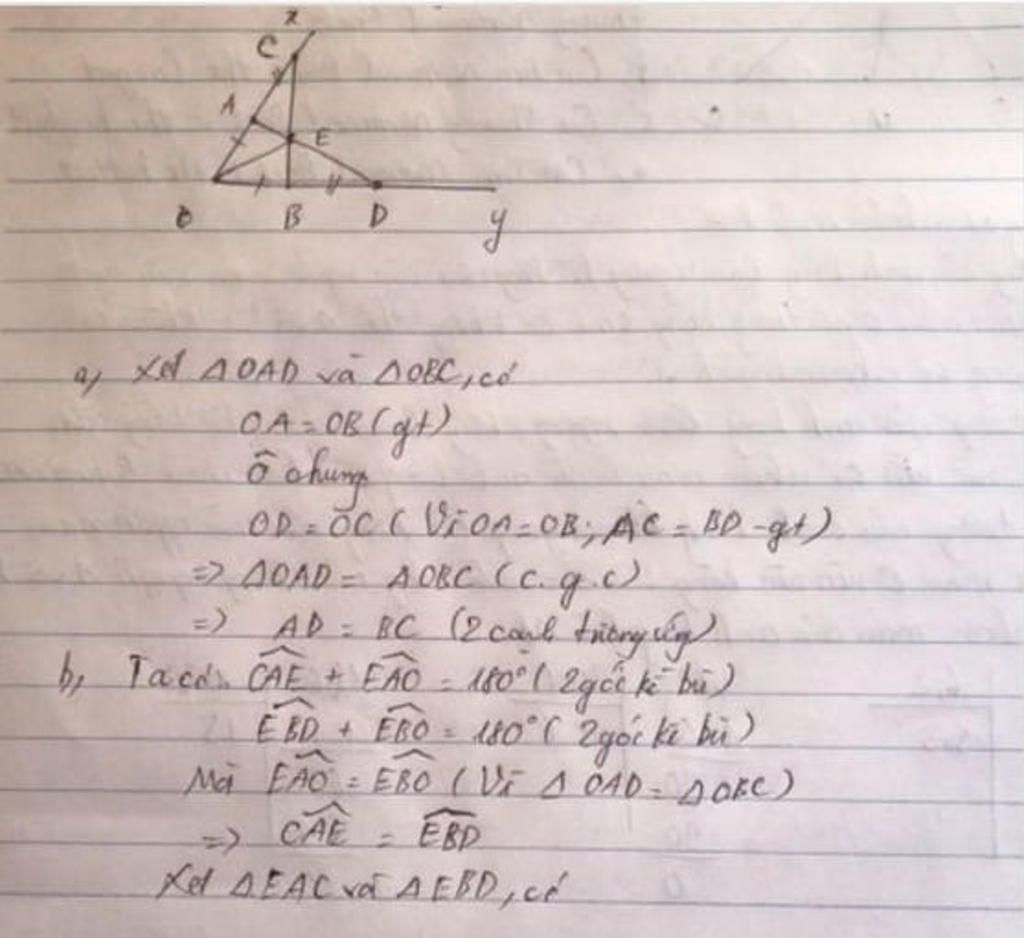 x
C
A
E
O B D y
a, Xét ΔOAD và ΔOBC, có
OA = OB (gt)
Ô chung
OD = OC (Vì OA = OB; AC = BD - gt)
=> ΔOAD = ΔOBC (c.g.c)
=> AD = BC (2 cạnh tương ứng)
b, Ta có: \widehat{CAE} + \widehat{EAO} = 180° (2 góc kề bù)
\widehat{EBD} + \widehat{EBO} = 180° (2 góc kề bù)
Mà \widehat{EAO} = \widehat{EBO} (Vì ΔOAD = ΔOBC)
=> \widehat{CAE} = \widehat{EBD}
Xét ΔEAC và ΔEBD, có